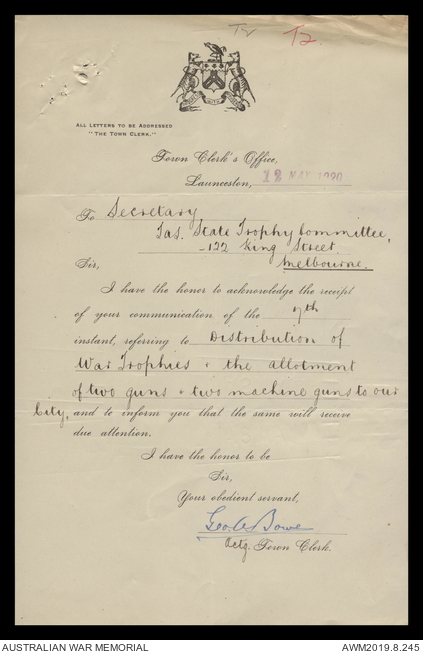 Tr T2.
ALL LETTERS TO BE ADDRESSED
"THE TOWN CLERK."
Town Clerk's Office,
Launceston, 12 MAY 1920
To Secretary
Tas. State Trophy Committee,
- 122 King Street
Melbourne.
Sir,
I have the honor to acknowledge the receipt
of your communication of the 7th
instant, referring to Distribution of
War Trophies & the allotment
of two guns & two machine guns to our
City, and to inform you that the same will receive
due attention.
I have the honor to be
Sir,
Your obedient servant,
Geo. A Bowe
Actg. Town Clerk.
AUSTRALIAN WAR MEMORIAL AWM2019.8.245